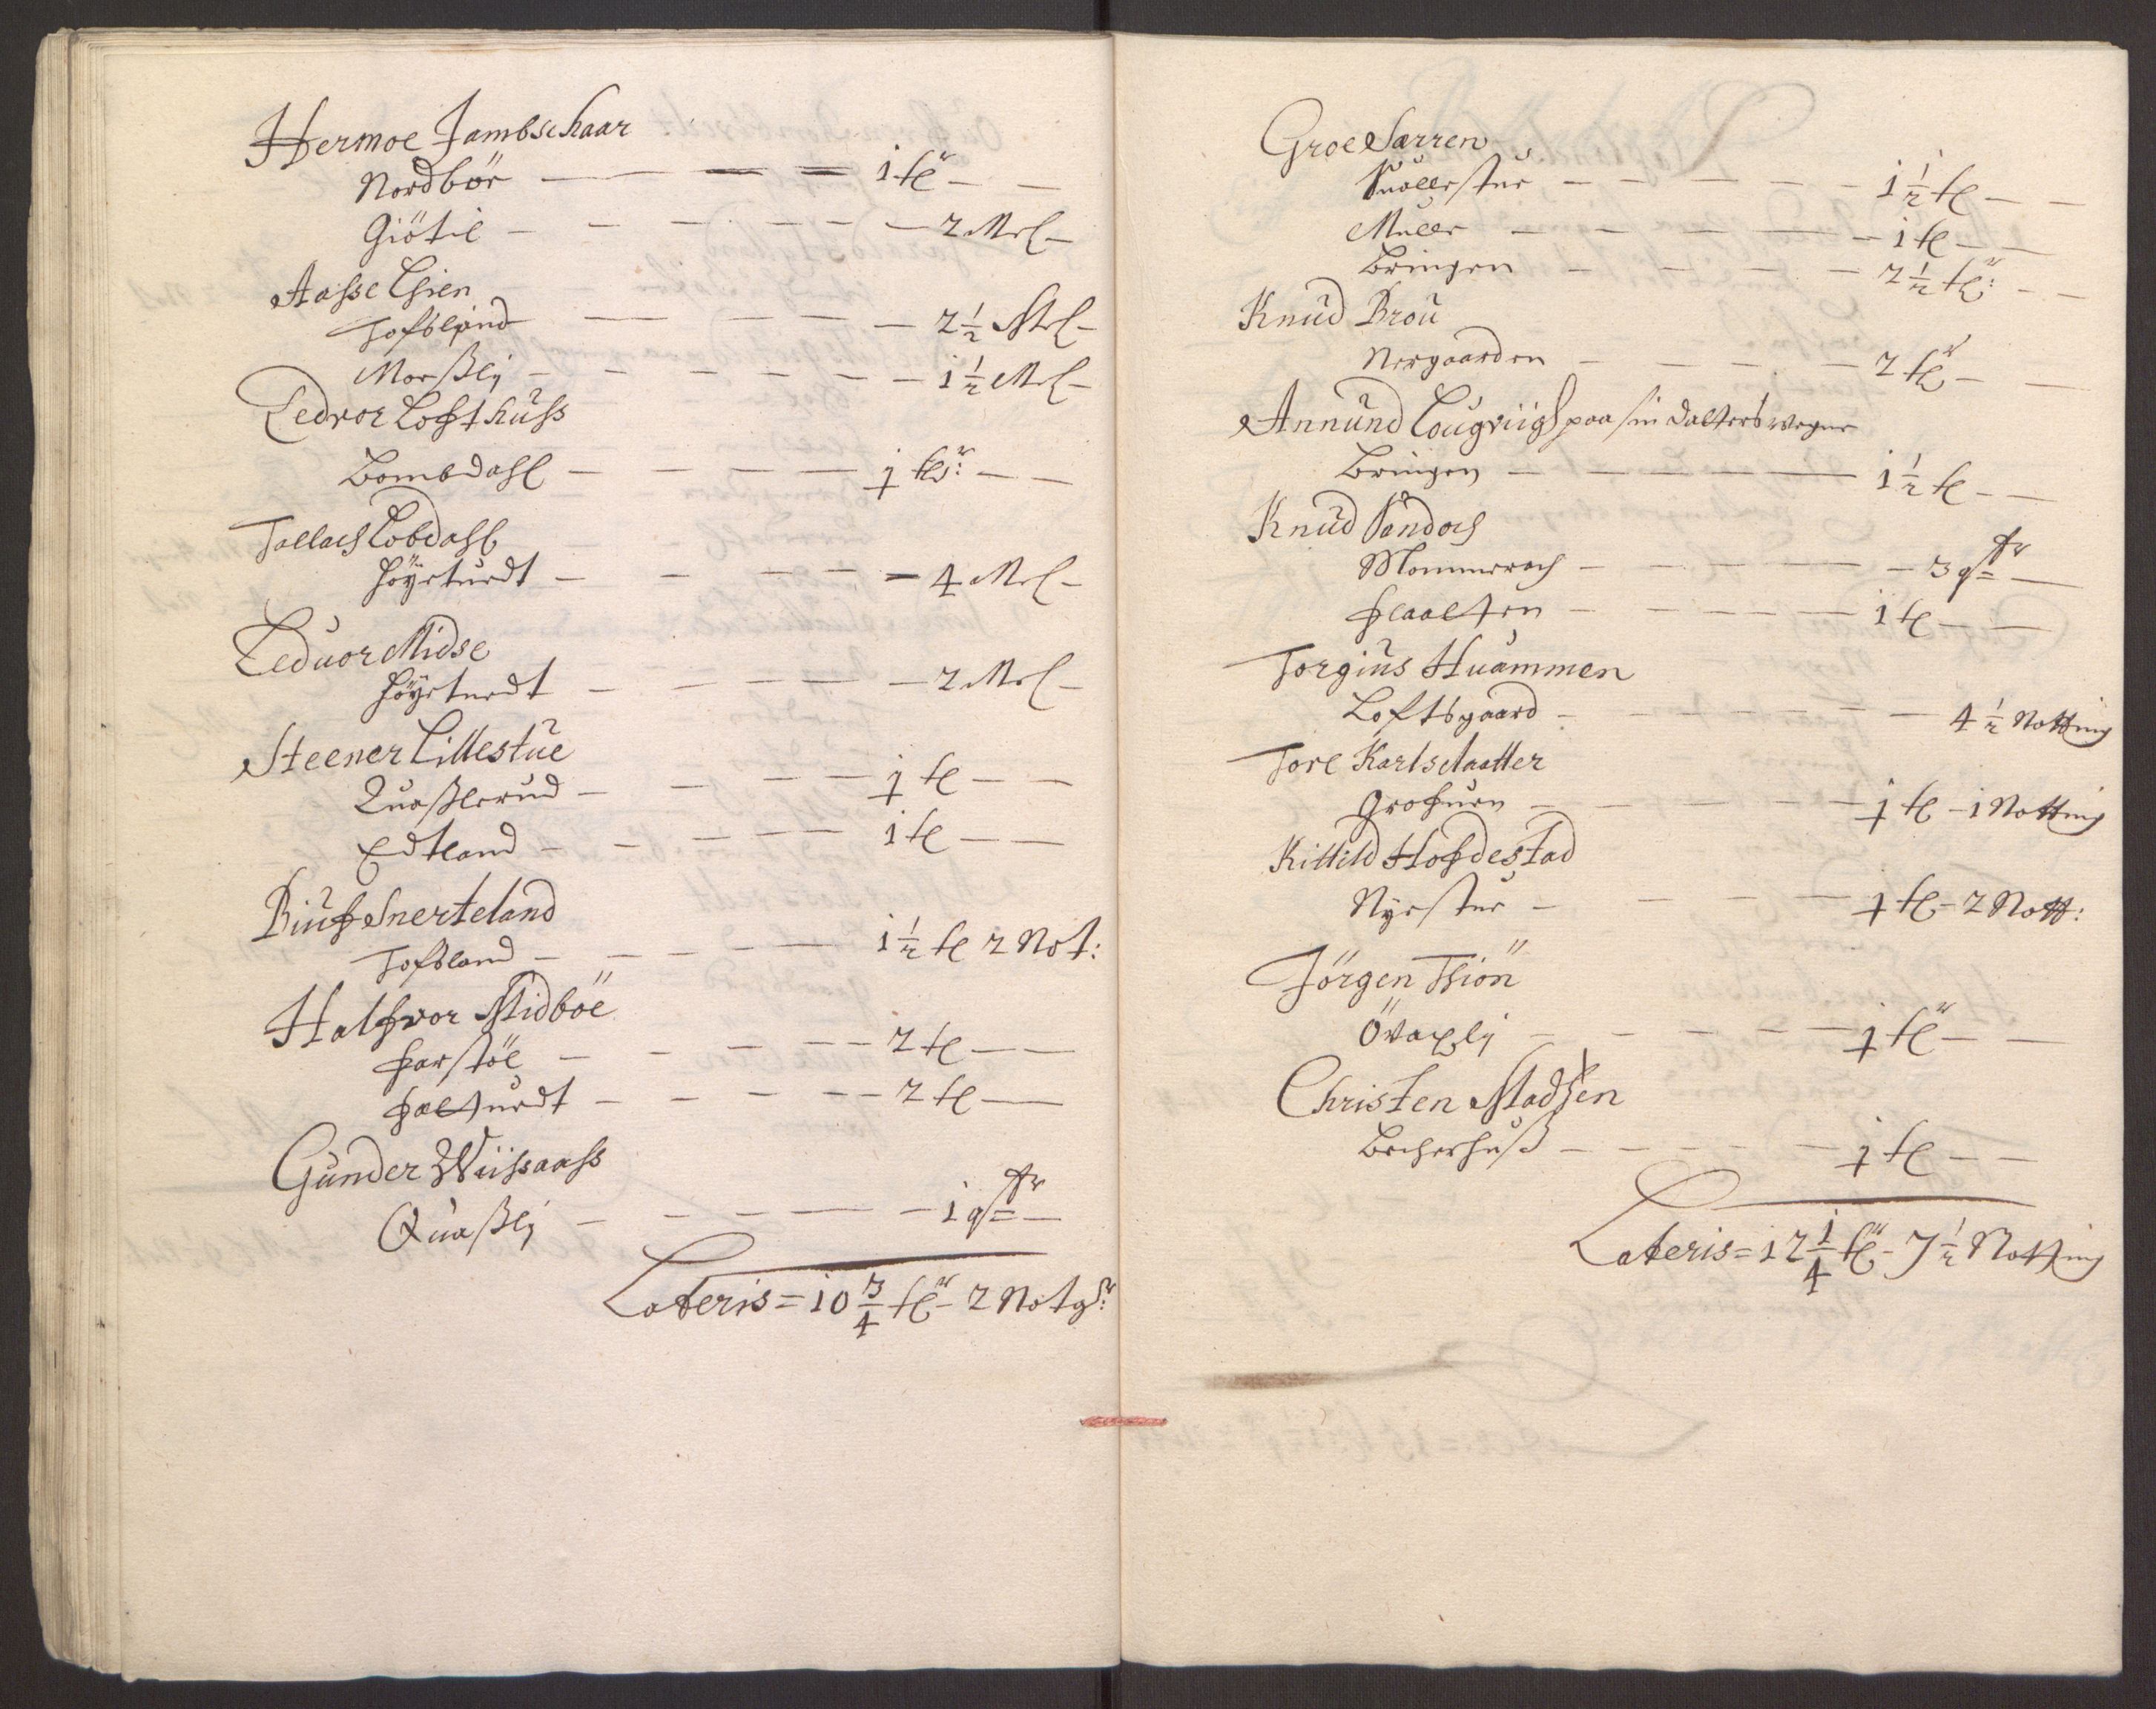 Hermoe Jambschaar
Nordböe — — — 1 tl r — —
Giötil — — — — 2 Mrl —
Aasse Lien
Tofsland — — — 2 1/2 Mrl —
Morßlij — — — — 1 1/2 Mrl —
Ledvor Lofthuss
Bombdahl — — — 1 tl r: — —
Tallach Lobdahl
Höyeturdt — — — 4 Mrl —
Leduor Midse
Höyeturdt — — — 2 Mrl —
Steener Lillestue
Quaßlerud — — — 1 tl — —
Edtland — — — 1 tl — —
Riuf Snerteland
Tofsland — — — 1 1/2 tl 2 Not:
Halfvor Midböe
Farstöl — — — 2 tl — —
Falturdt — — — 2 tl —
Gunder Wiissaass
Quaßlij — — — 1 qtr —
Lateris = 10 3/4 tl r — 2 Notgr:
Groe Sarren
Suollestue — — — 1 1/2 tl — —
Mulle — — — 1 tl — —
Bringen — — — 2 1/2 tl r: — —
Knud Brou
Nergaarden — — — 2 tl r — —
Annund Lougviigh paa sin datters wegne
Bringen — — — 1 1/2 tl — —
Knud Sandoch
Mommerach — — — 3 qtr —
Flaalten — — — 1 tl — —
Torgius Huammen
Loftsgaard — — — 4 1/2 Notting
Tore Karlschatter
Grofuen — — — 1 tl — 1 Notting
Kittild Hofdestad
Nyestue — — — 1 tl — 2 Nott:
Jörgen Tsiön
Öwaslij — — — 1 tl r — —
Christen Madsen
Becherhuß — — — 1 tl — —
Lateris = 12 1/4 tl r — 7 1/2 Notting